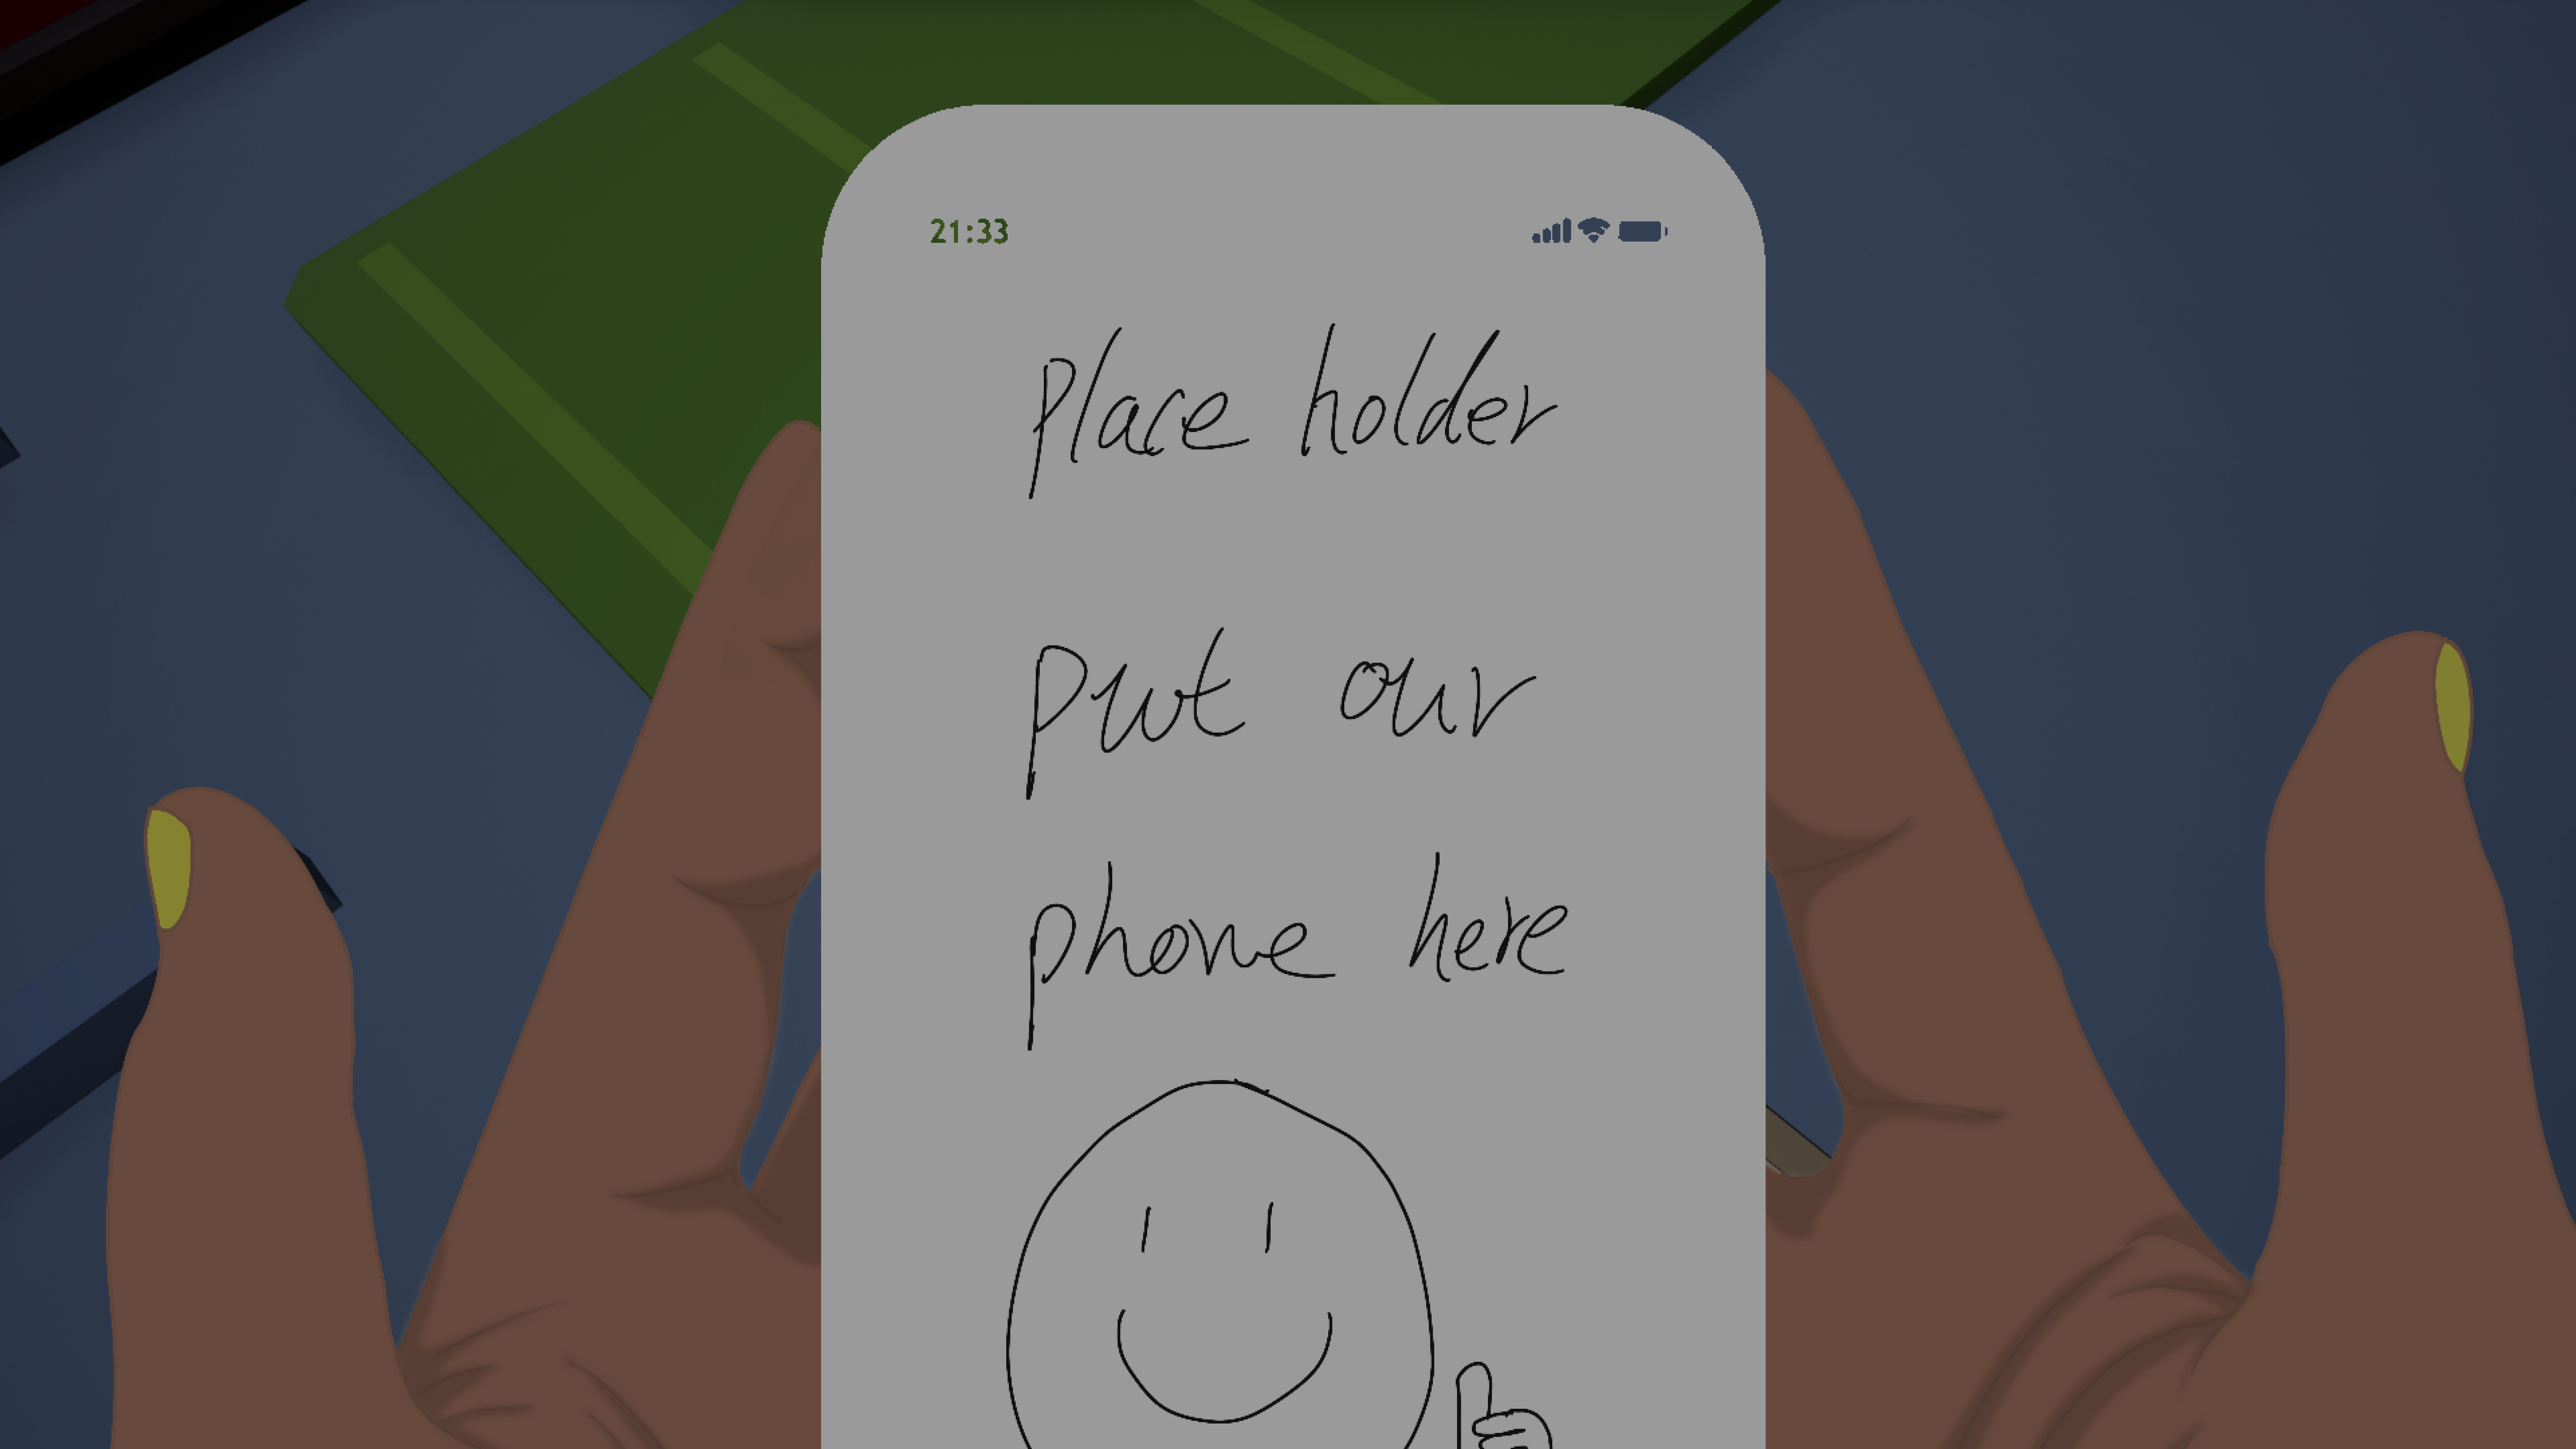 21:33
Place holder
put our
phone here